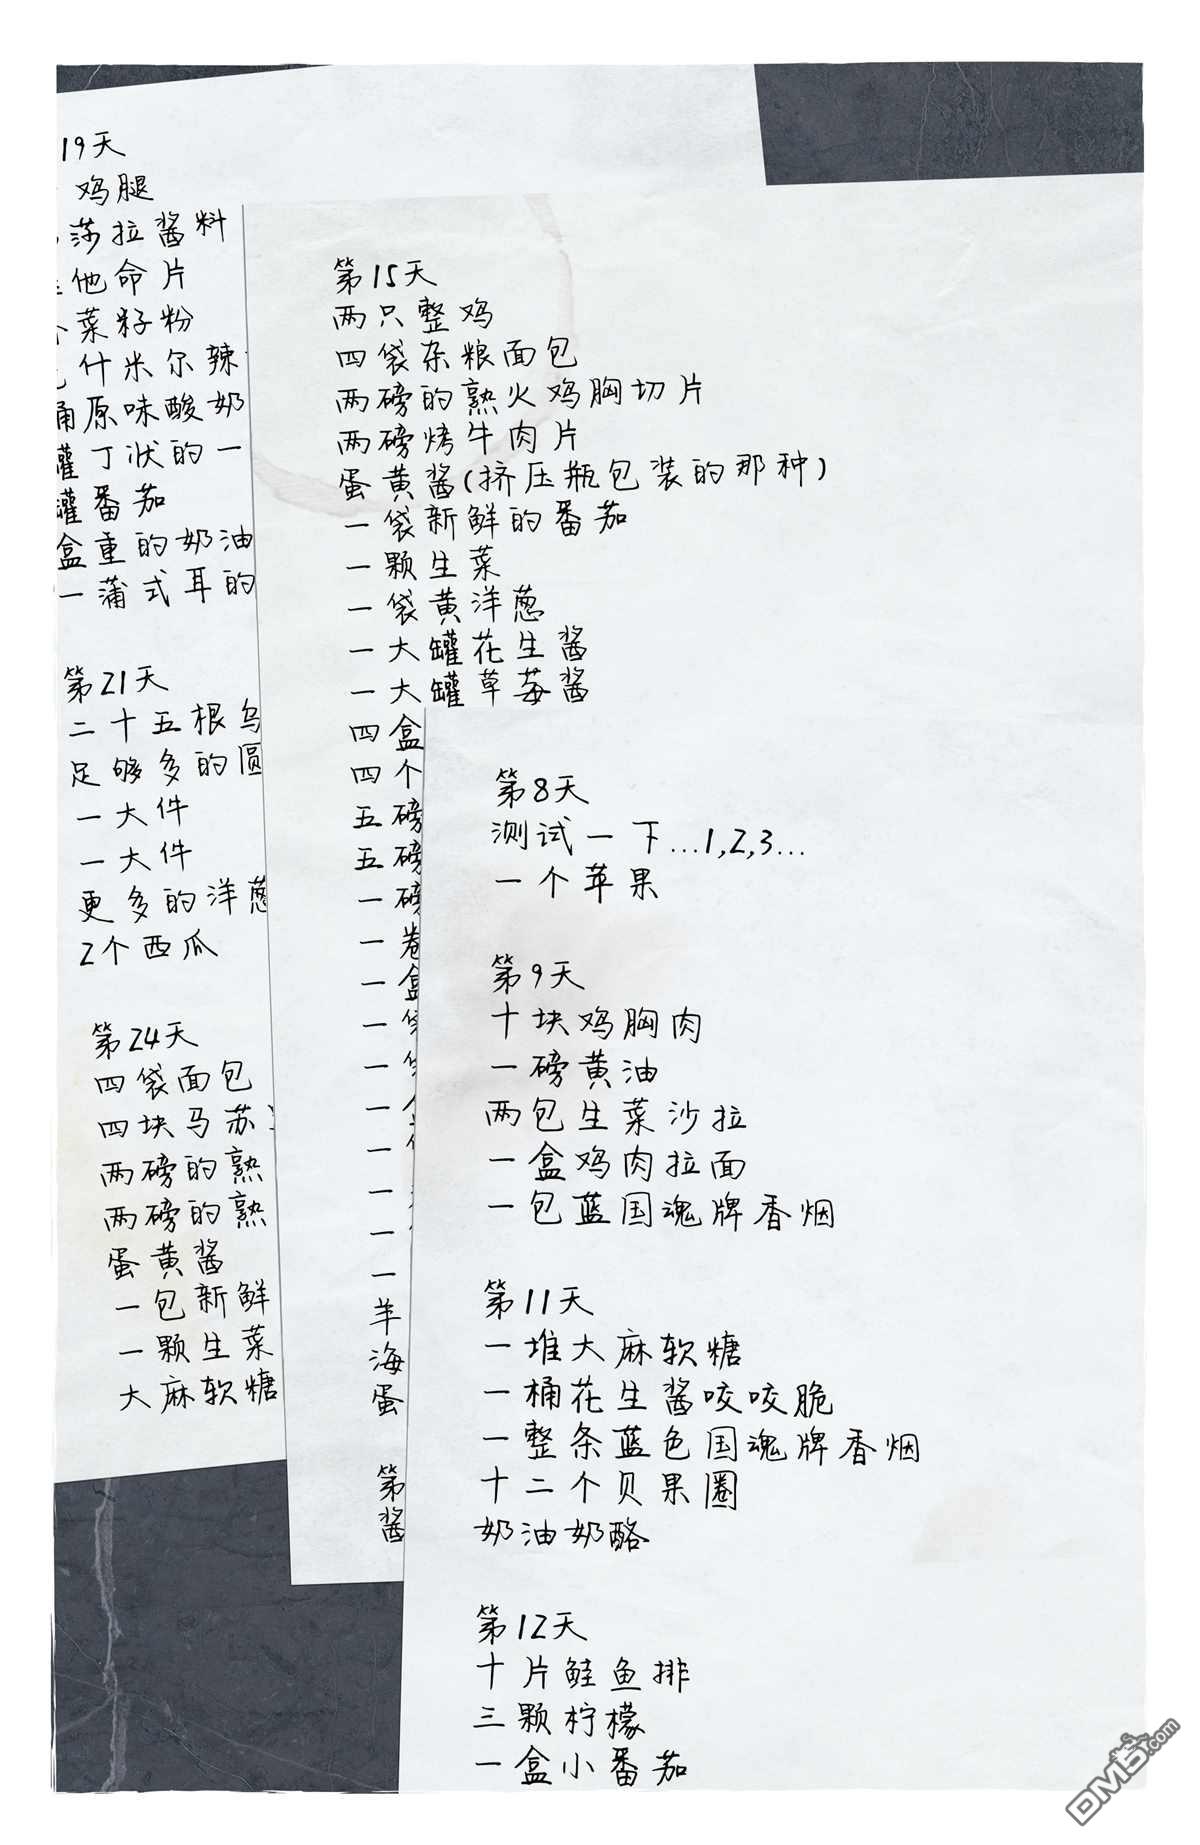 19天
鸡腿
莎拉酱料
他命片
菜籽粉
什米尔辣
桶原味酸奶
罐丁状的一
罐番茄
盒重的奶油
一蒲式耳的
第21天
二十五根乌
足够多的圆
一大件
一大件
更多的洋葱
2个西瓜
第24天
四袋面包
四块马苏
两磅的熟
两磅的熟
蛋黄酱
一包新鲜
一颗生菜
大麻软糖
第15天
两只整鸡
四袋杂粮面包
两磅的熟火鸡胸切片
两磅烤牛肉片
蛋黄酱(挤压瓶包装的那种)
一袋新鲜的番茄
一颗生菜
一袋黄洋葱
一大罐花生酱
一大罐草莓酱
四盒
四个
五磅
五磅
一磅
一卷
一盒
一袋
一
一
一
一
一
一
羊
海
蛋
第
酱
第8天
测试一下...1,2,3...
一个苹果
第9天
十块鸡胸肉
一磅黄油
两包生菜沙拉
一盒鸡肉拉面
一包蓝国魂牌香烟
第11天
一堆大麻软糖
一桶花生酱咬咬脆
一整条蓝色国魂牌香烟
十二个贝果圈
奶油奶酪
第12天
十片鲑鱼排
三颗柠檬
一盒小番茄
DM5.com